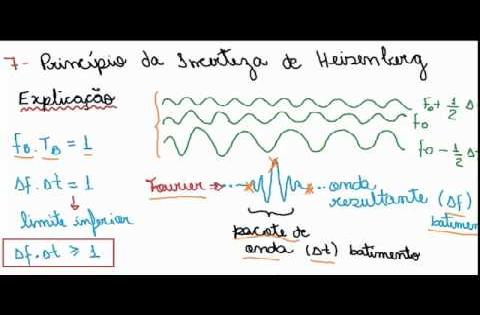 7- Princípio da Incerteza de Heisenberg
Explicação
f0 + 1/2 Δ
f0
f0 - 1/2 Δ
fB.TB = 1
Δf.Δt = 1
↓
limite inferior
Δf.Δt ≥ 1
Fourier →
onda
resultante (Δf)
batimen
pacote de
onda (Δt) batimento